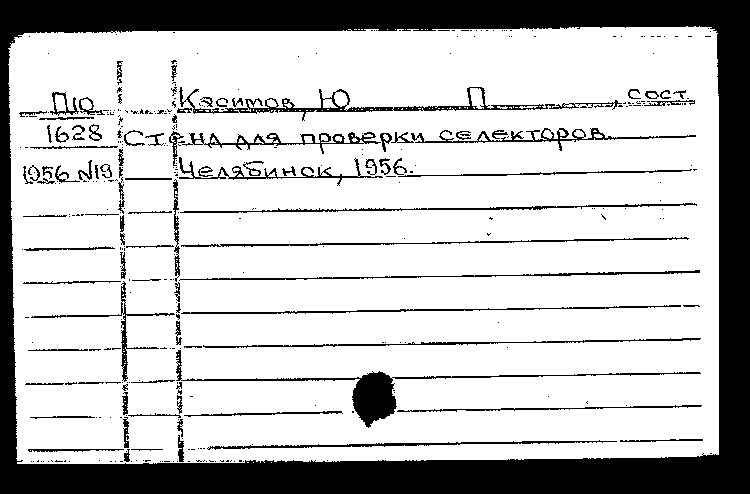 П10 Касимов, Ю П , сост.
1628 Стенд для проверки селекторов.
1956 №19 Челябинск, 1956.